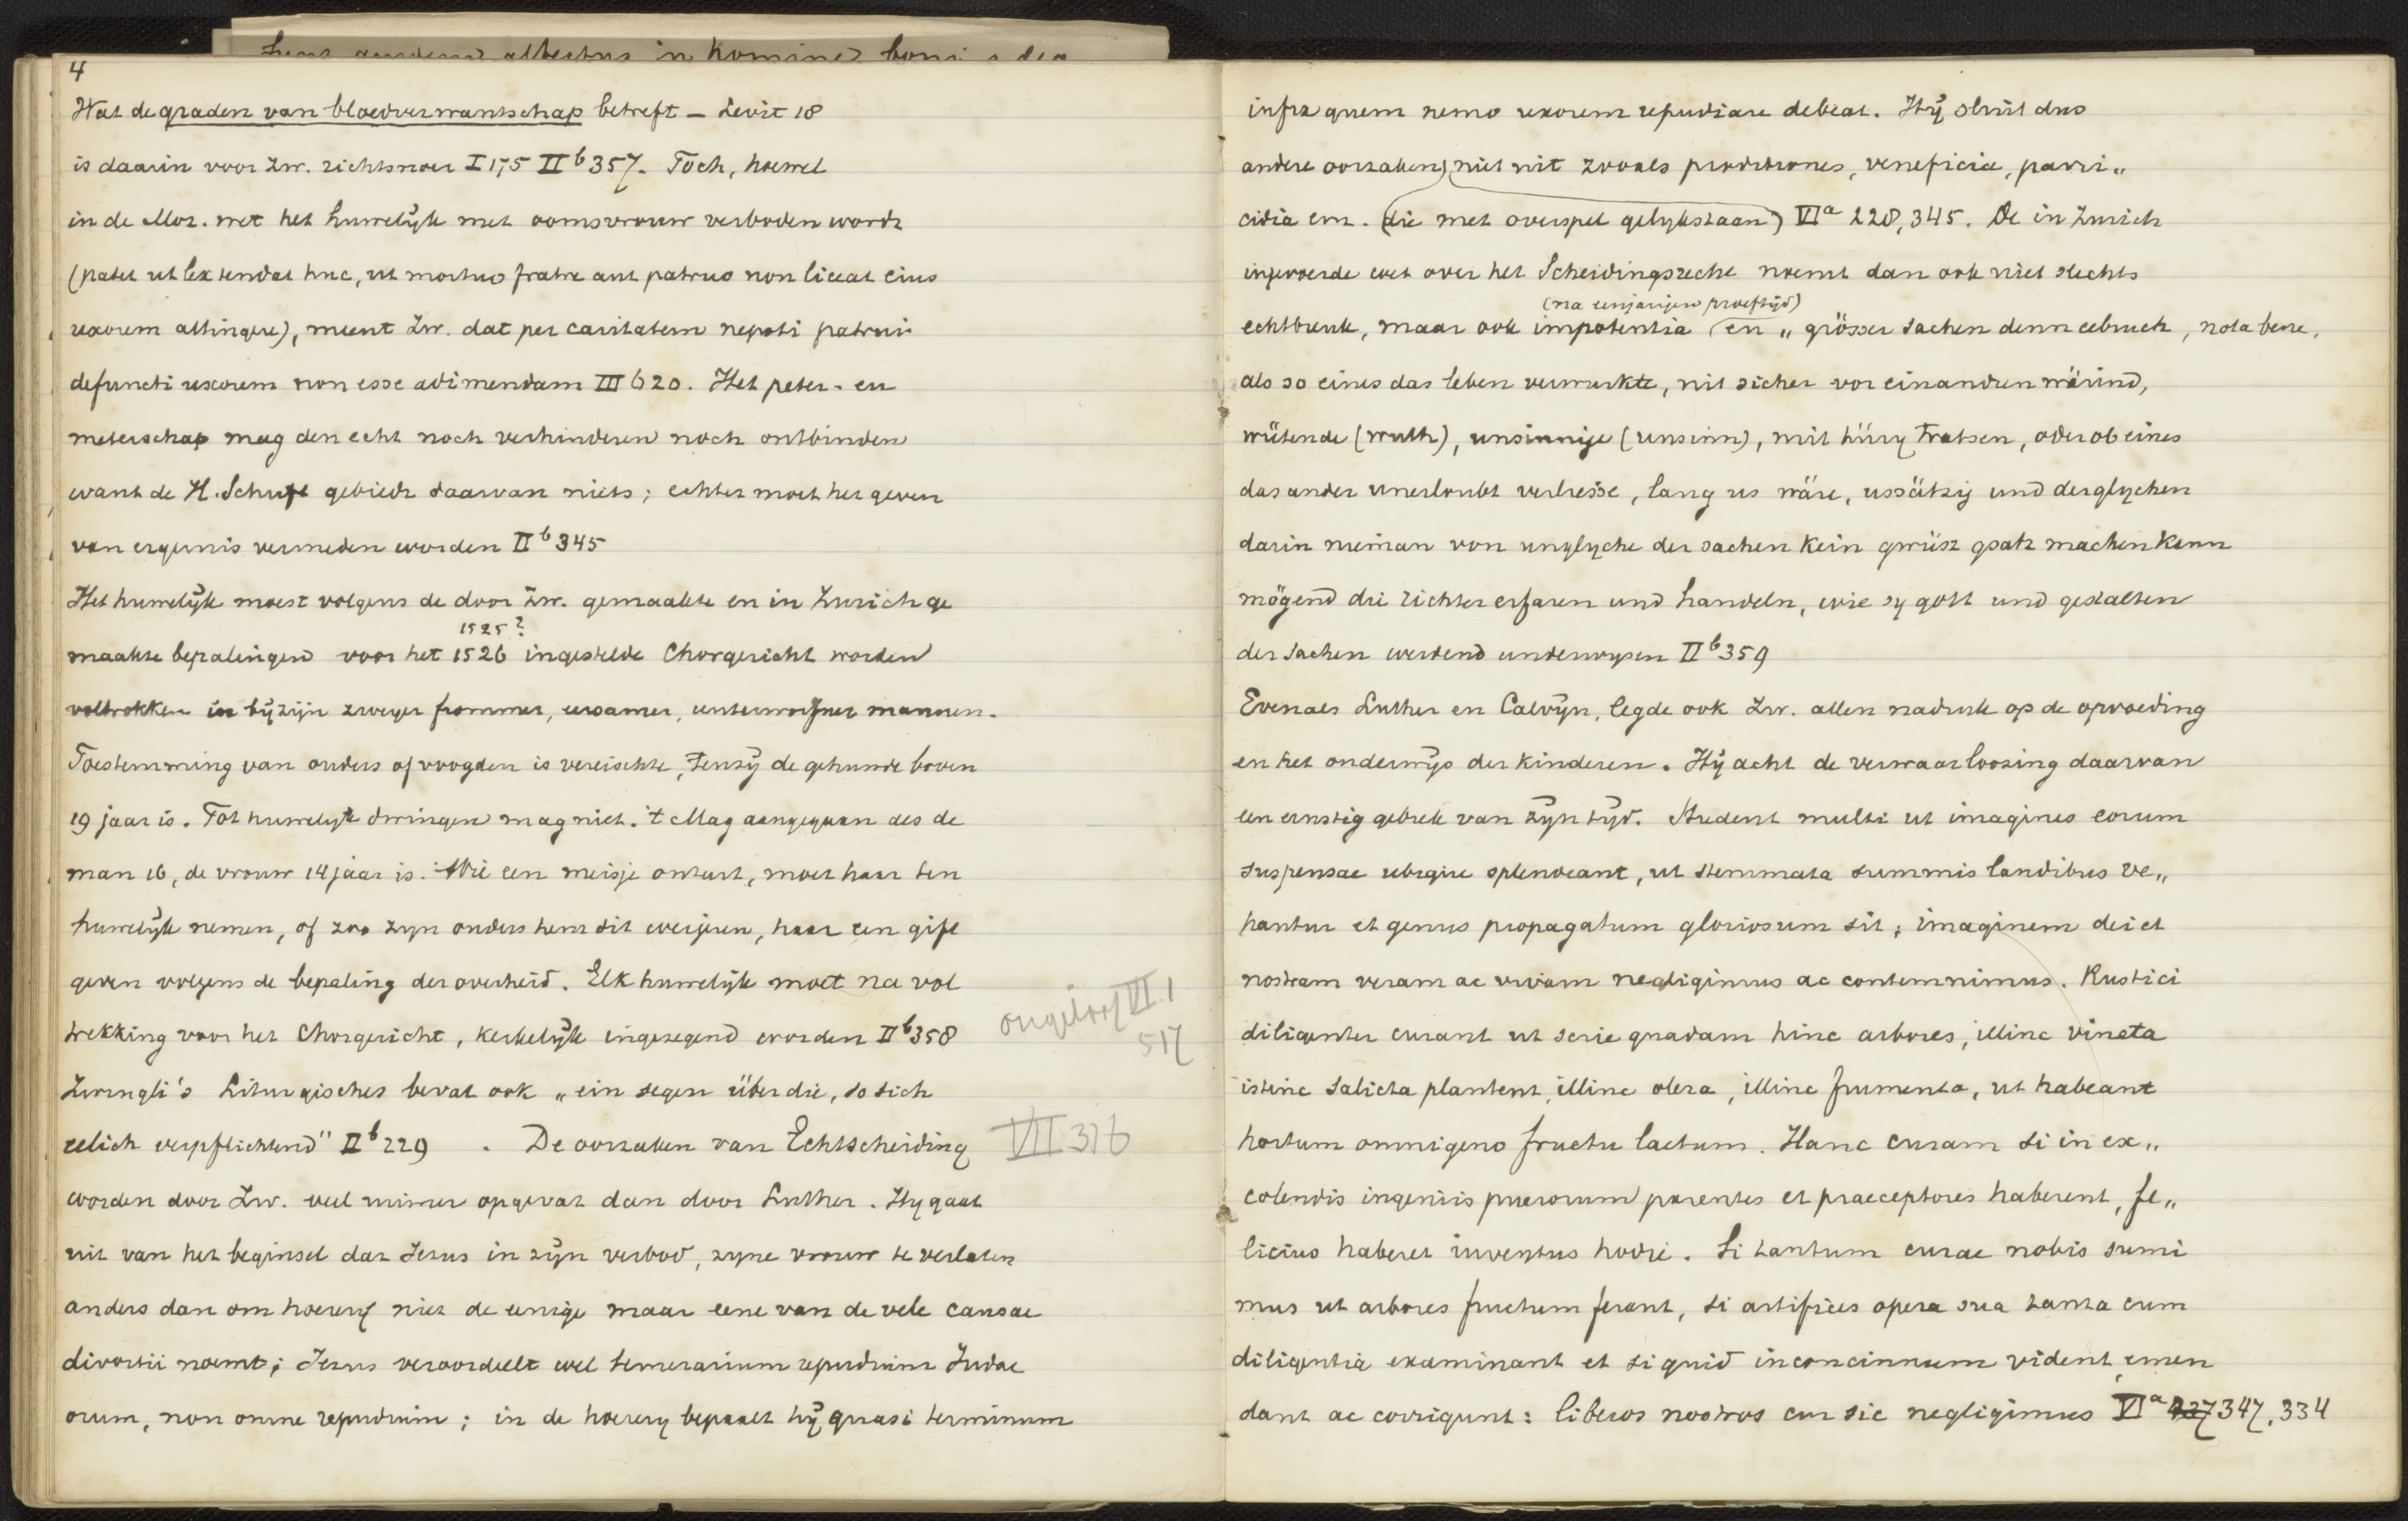 4
Wat de graden van bloedverwantschap betreft – Levit 18
is daarin voor Zw. richtsnoer I 175 II b 357. Toch, hoewel
in de Moz. wet het huwelijk met oomsvrouw verboden wordt
(patet ut lex tendat huc, ut mortuo fratre aut patruo non liceat eius
uxorem attingere), meent Zw. dat per caritatem nepoti patrui
defuncti uxorem non esse adimendam III 620. Het peter- en
meterschap mag den echt noch verhinderen noch ontbinden
want de H. Schrift gebiedt daarvan niets; echter moet het geven
van ergernis vermeden worden II b 345
Het huwelijk moest volgens de door Zw. gemaakte en in Zurich ge
1525?
maakte bepalingen voor het 1526 ingestelde Chorgericht worden
voltrokken in bijzijn zweyer frommer, eersamer, unverworfner mannen.
Toestemming van ouders of voogden is vereischte, tenzij de gehuwde boven
19 jaar is. Tot huwelijk dwingen mag niet. 't Mag aangegaan als de
man 16, de vrouw 14 jaar is. Wie een meisje onteert, moet haar ten
huwelijk nemen, of zoo zijn ouders hem dit weigeren, haar een gift
geven volgens de bepaling der overheid. Elk huwelijk moet na vol
trekking voor het Chorgericht, kerkelijk ingezegend worden II b 358
ongeloof VI.1
517
Zwingli's Liturgisches bevat ook „ein segen über die, so sich
eelich verpflichtend" II b 229 . De oorzaken van Echtscheiding
VII 316
worden door Zw. veel ruimer opgevat dan door Luther. Hij gaat
uit van het beginsel dat Jezus in zijn verbod, zijne vrouw te verlaten
anders dan om hoererij niet de eenige maar eene van de vele causae
divortii noemt; Jezus veroordeelt wel temerarium repudium Judae
orum, non omne repudium; in de hoererij bepaalt hij quasi terminum
infra quem nemo uxorem repudiare debeat. Hij sluit dus
andere oorzaken niet uit zooals proditiones, veneficia, parri„
cidia enz. (die met overspel gelijkstaan) VI a 228, 345. De in Zurich
ingevoerde wet over het Scheidingsrecht noemt dan ook niet slechts
(na eenjarigen proeftijd)
echtbreuk, maar ook impotentia en „grösser sachen denn eebruch, nota bene,
als so eines das leben verwurkte, nit sicher vor einandren wärind,
wütende (wuth), unsinnige (unsinn), mit hüry tratsen, oder ob eines
das ander unerloubt verliesse, lang us wäre, ussätzig und derglychen
darin nieman von unglyche der sachen kein gwüsz gsatz machen kann
mögend die richter erfaren und handeln, wie sy gott und gestalten
der sachen werdend underwysen II b 359
Evenals Luther en Calvijn, legde ook Zw. allen nadruk op de opvoeding
en het onderwijs der kinderen. Hij acht de verwaarloozing daarvan
een ernstig gebrek van zijn tijd. Student multi ut imagines eorum
suspensae ubique splendeant, ut stemmata summis laudibus ve„
hantur et genus propagatum gloriosum sit; imaginem dei et
nostram veram ac vivam negligimus ac contemnimus. Rustici
diligenter curant ut serie quadam hinc arbores, illinc vineta
istinc salicta plantent, illinc olera, illinc frumenta, ut habeant
hortum omnigeno fructu laetum. Hanc curam si in ex„
colendis ingeniis puerorum parentes et praeceptores haberent, fe„
licius haberet iuventus hodie. Si tantum curae nobis sumi
mus ut arbores fructum ferant, si artifices opera sua tanta cum
diligentia examinant et si quid inconcinnum vident, emen
dant ac corrigunt: liberos nostros cur sic negligimus VI a 347, 334